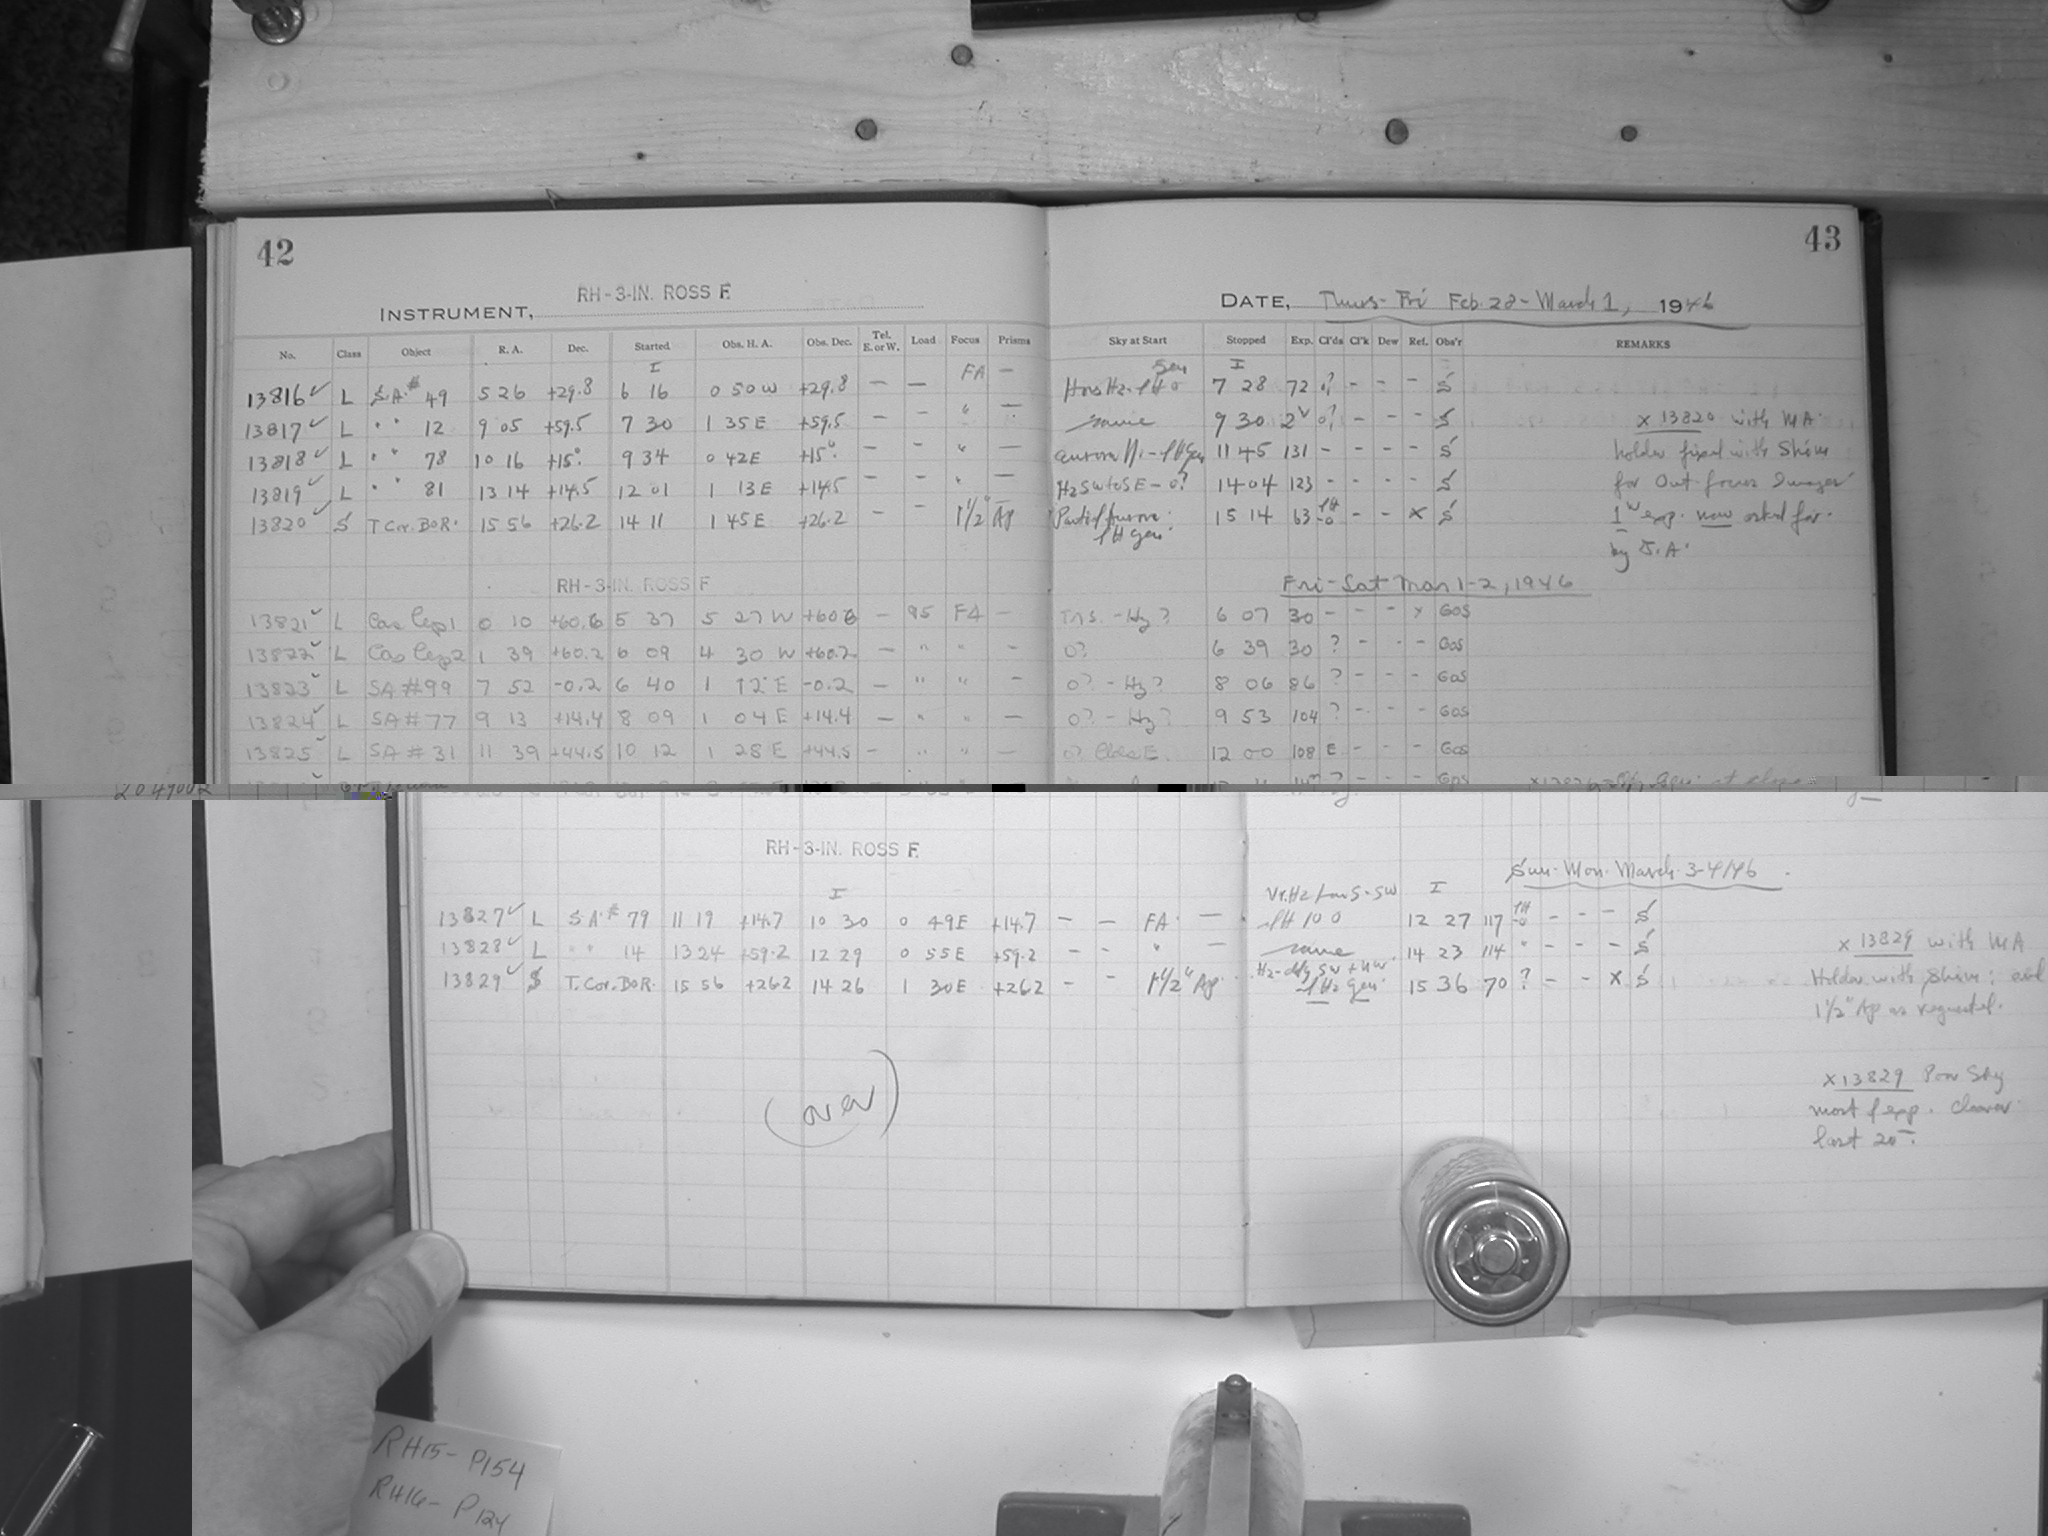 42
43
RH-3-IN. ROSS F.
INSTRUMENT,
DATE, Thurs-Fri Feb. 28-March 1, 1946
No. Class Object R. A. Dec. Started Obs. H. A. Obs. Dec. Tel. E. or W. Load Focus Prisms Sky at Start Stopped Exp. Cl'ds Cl'k Dew Ref. Obs'r REMARKS
13816 L S.A.# 49 5 26 +29.8 6 16 0 50 W +29.8 — — FA — 7 28 72 ? - - - S
13817 L " " 12 9 05 +59.5 7 30 1 35 E +59.5 — — " — same 9 30 2 ? - - - S x 13820 with MA
13818 L " " 78 10 16 +15° 9 34 0 42E +15° — — " — 11 45 131 - - - - S holder fixed with Shim
13819 L " " 81 13 14 +14.5 12 01 1 13E +14.5 — — " — H2 SW to SE - 0? 14 04 123 - - - - S for Out focus Images
13820 S T.Cor.BOR. 15 56 +26.2 14 11 1 45 E +26.2 1½" Ap 15 14 63 - - x S 1 exp. now asked for
by S.A.
RH-3-IN. ROSS F
Fri-Sat Mar 1-2, 1946
13821 L Cas Cep 1 0 10 +60.6 5 37 5 27 W +60.6 — 95 FA — 6 07 30 - - - x Gos
13822 L Cas Cep 2 1 39 +60.2 6 09 4 30 W +60.2 — " " — 0? 6 39 30 ? - - - Gos
13823 L SA#99 7 52 -0.2 6 40 1 12 E -0.2 — " " — 0? - Hz? 8 06 86 ? - - - Gos
13824 L SA#77 9 13 +14.4 8 09 1 04 E +14.4 — " " — 0? - Hz? 9 53 104 ? - - - Gos
13825 L SA#31 11 39 +44.5 10 12 1 28 E +44.5 — " " — 12 00 108 E - - - Gos
RH-3-IN. ROSS F.
Sun-Mon March 3-4/46
13827 L S.A.# 79 11 19 +14.7 10 30 0 49E +14.7 — — FA — 12 27 117 - - - S
13828 L " " 14 13 24 +59.2 12 29 0 55E +59.2 — — " — same 14 23 114 " - - - S x 13829 with MA
13829 S T.Cor.BOR. 15 56 +26.2 14 26 1 30E +26.2 — — 1½" Ap 15 36 70 ? - - X S Holder with Shim; and
1½" Ap as requested.
(over)
x 13829 Poor Sky
most of exp. clearer
last 20
RH15-P154
RH16-P124